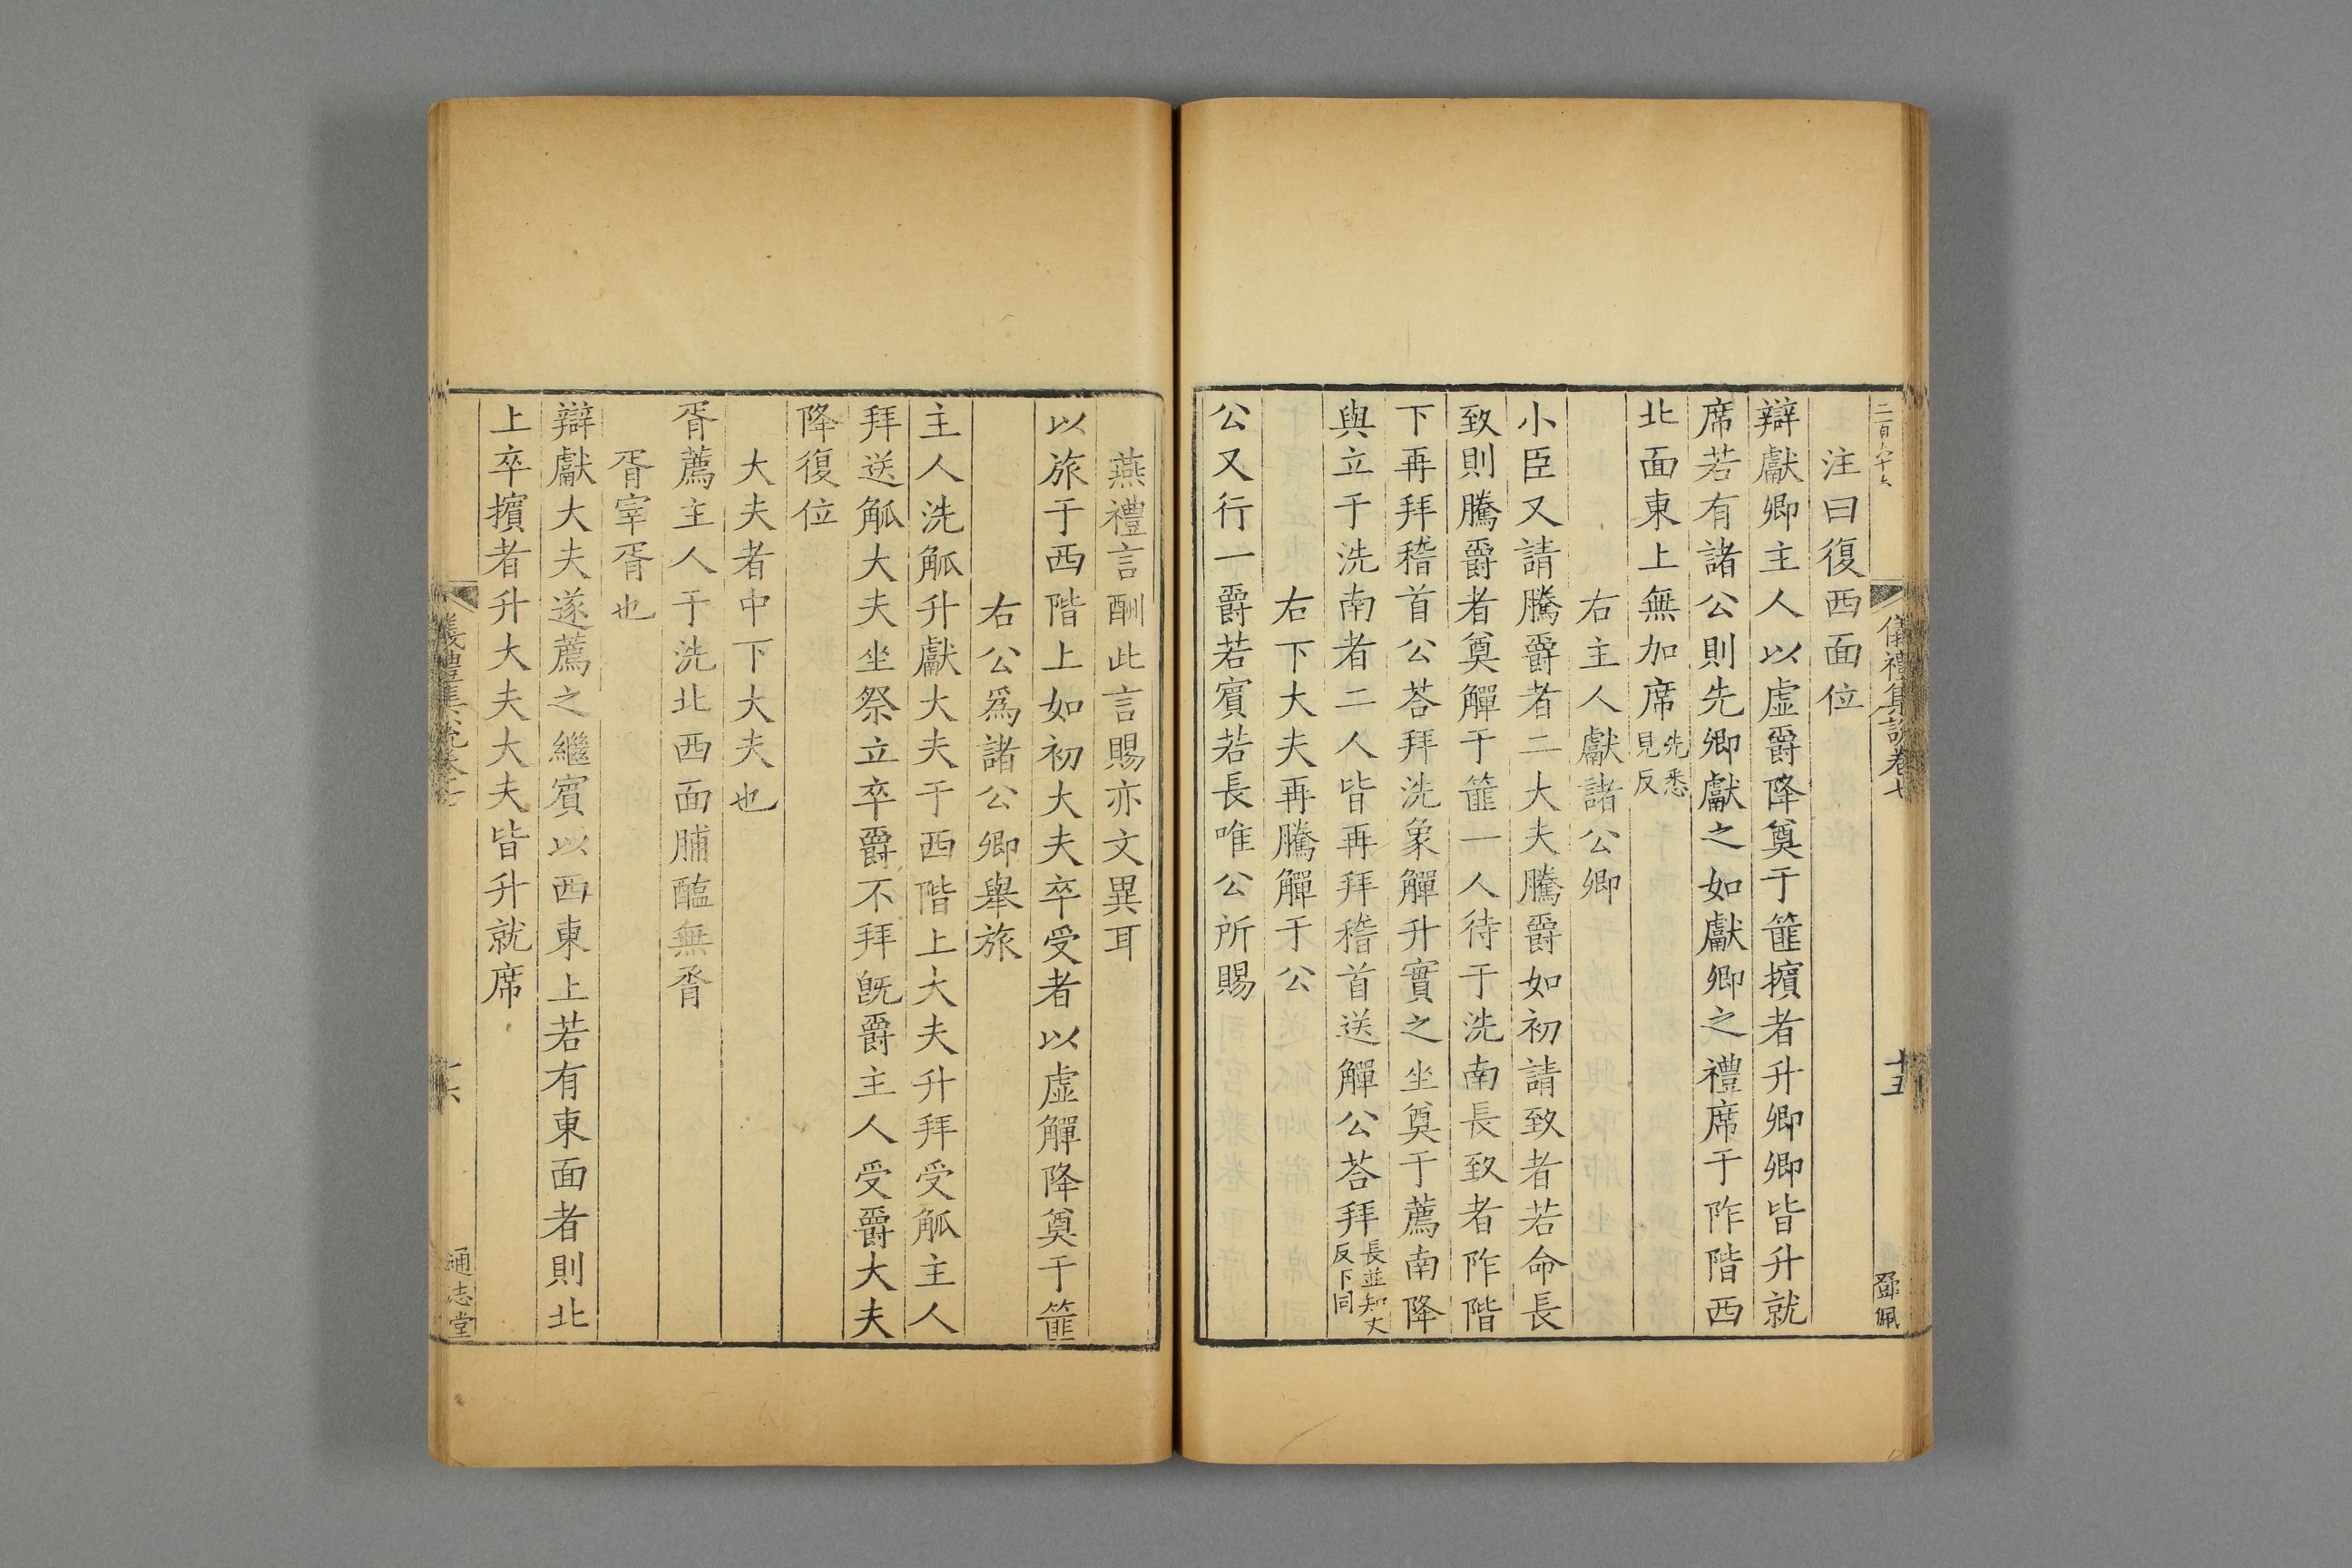 儀禮集說卷七
十五
注曰復西面位
辯獻卿主人以虛爵降奠于篚擯者升卿卿皆升就
席若有諸公則先卿獻之如獻卿之禮席于阼階西
北面東上無加席先悉見反
右主人獻諸公卿
小臣又請騰爵者二大夫騰爵如初請致者若命長
致則騰爵者奠觶于篚一人待于洗南長致者阼階
下再拜稽首公荅拜洗象觶升實之坐奠于薦南降
與立于洗南者二人皆再拜稽首送觶公荅拜長並知丈反下同
右下大夫再騰觶于公
公又行一爵若賓若長唯公所賜
燕禮言酬此言賜亦文異耳
以旅于西階上如初大夫卒受者以虛觶降奠于篚
右公爲諸公卿舉旅
主人洗觚升獻大夫于西階上大夫升拜受觚主人
拜送觚大夫坐祭立卒爵不拜旣爵主人受爵大夫
降復位
大夫者中下大夫也
胥薦主人于洗北西面脯醢無脀
胥宰胥也
辯獻大夫遂薦之繼賓以西東上若有東面者則北
上卒擯者升大夫大夫皆升就席
儀禮集說卷七
十六
通志堂